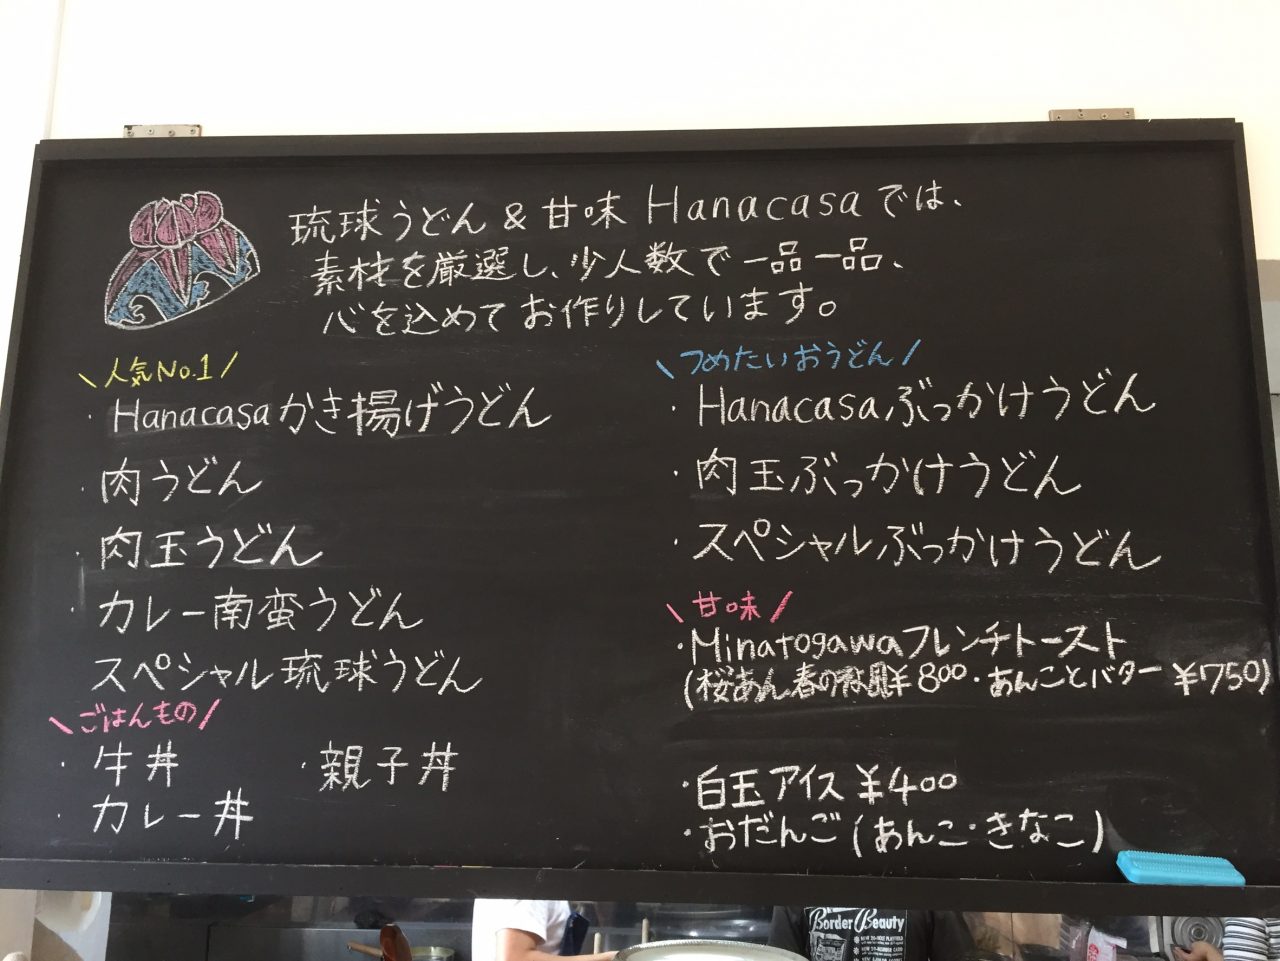 琉球うどん & 甘味 Hanacasaでは、
素材を厳選し、少人数で一品一品、
心を込めてお作りしています。
\人気No.1/
・Hanacasaかき揚げうどん
・肉うどん
・肉玉うどん
・カレー南蛮うどん
スペシャル琉球うどん
\ごはんもの/
・牛丼 ・親子丼
・カレー丼
\つめたいおうどん/
・Hanacasaぶっかけうどん
・肉玉ぶっかけうどん
・スペシャルぶっかけうどん
\甘味/
・Minatogawaフレンチトースト
(桜あん春の ¥800・あんことバター ¥750)
・白玉アイス ¥400
・おだんご (あんこ・きなこ)
Border Beauty